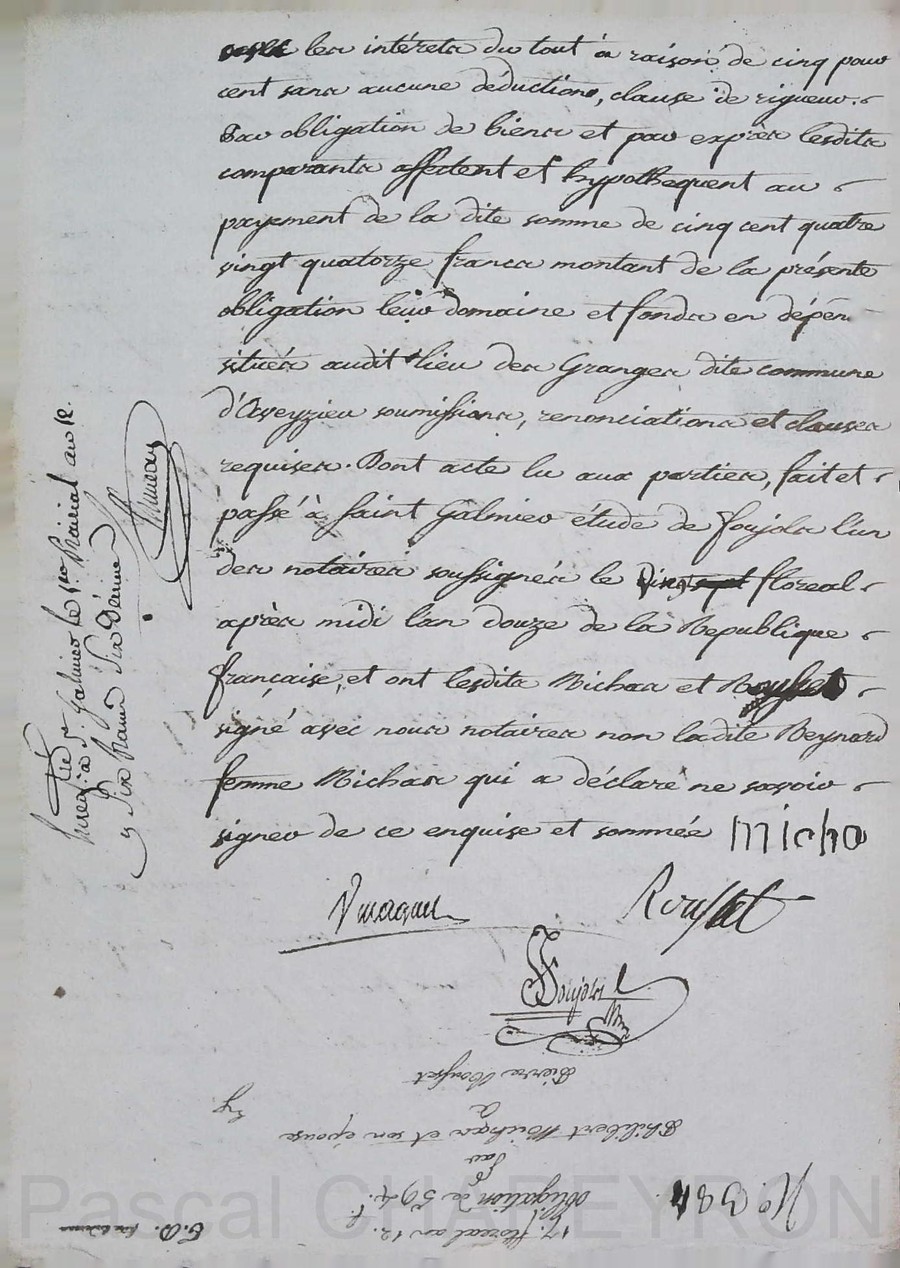 les intérets du tout à raison de cinq pour
cent sans aucune déduction, clause de rigueur.
Par obligation de biens et par exprès lesdits
comparants affectent et hypothequent au
payement de la dite somme de cinq cent quatre
vingt quatorze francs montant de la présente
obligation leur domaine et fonds en dépen
situés audit lieu des Granges dite commune
d'Aveyzieu soumissions, renonciations et clauses
requises. Dont acte lu aux parties, fait et
passé à Saint Galmier étude de Foujols l'un
des notaires soussignés le floreal
après midi l'an douze de la Republique
française, et ont lesdits Michas et Rousset
signé avec nous notaires non ladite Reynard
femme Michas qui a déclaré ne savoir
signer de ce enquise et sommée Micha
Rousset
Foujols
à St Galmier le prairial an 12.
Pierre Rousset
à
Philibert Michas et son épouse
Par
obligation de 594 f.
17. floreal an 12.
N°. 384
Pascal CHAPEYRON